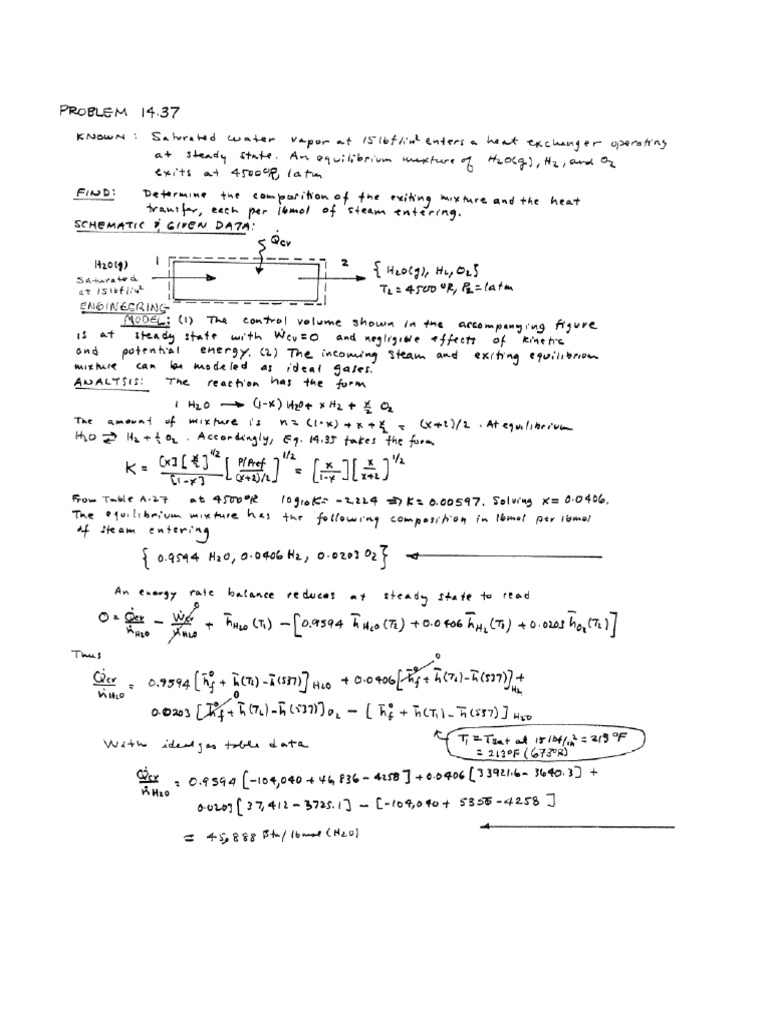 PROBLEM 14.37
KNOWN: Saturated water vapor at 15 lbf/in² enters a heat exchanger operating
at steady state. An equilibrium mixture of H2O(g), H2, and O2
exits at 4500°R, 1atm
FIND: Determine the composition of the exiting mixture and the heat
transfer, each per lbmol of steam entering.
SCHEMATIC & GIVEN DATA:
Q̇cv
H2O(g) 1 2 { H2O(g), H2, O2}
Saturated T2 = 4500°R, P2 = 1atm
at 15 lbf/in²
ENGINEERING
MODEL: (1) The control volume shown in the accompanying figure
is at steady state with Ẇcv = 0 and negligible effects of kinetic
and potential energy. (2) The incoming steam and exiting equilibrium
mixture can be modeled as ideal gases.
ANALYSIS: The reaction has the form
1 H2O → (1-x) H2O + x H2 + x/2 O2
The amount of mixture is n = (1-x) + x + x/2 = (x+2)/2. At equilibrium
H2O ⇄ H2 + ½ O2. Accordingly, Eq. 14.35 takes the form
K = [x][x/2]^1/2 / [1-x] [P/Pref / (x+2)/2]^1/2 = [x / 1-x] [x / x+2]^1/2
From Table A-27 at 4500°R log10 K = -2.224 ⇒ K = 0.00597. Solving x = 0.0406.
The equilibrium mixture has the following composition in lbmol per lbmol
of steam entering
{ 0.9594 H2O, 0.0406 H2, 0.0203 O2 } ←
An energy rate balance reduces at steady state to read
0 = Q̇cv/ṅH2O - Ẇcv/ṅH2O 0 + h̄H2O (T1) - [0.9594 h̄H2O (T2) + 0.0406 h̄H2 (T2) + 0.0203 h̄O2 (T2)]
Thus
Q̇cv/ṅH2O = 0.9594 [h̄°f + h̄(T2) - h̄(537)]H2O + 0.0406 [h̄°f 0 + h̄(T2) - h̄(537)]H2 +
0.0203 [h̄°f 0 + h̄(T2) - h̄(537)]O2 - [h̄°f + h̄(T1) - h̄(537)]H2O
With ideal gas table data
T1 = Tsat at 15 lbf/in² = 213°F
= 213°F (673°R)
Q̇cv/ṅH2O = 0.9594 [-104,040 + 46,836 - 4258] + 0.0406 [33921.6 - 3640.3] +
0.0203 [37,412 - 3725.1] - [-104,040 + 5356 - 4258]
= 45,888 Btu/lbmol (H2O) ←